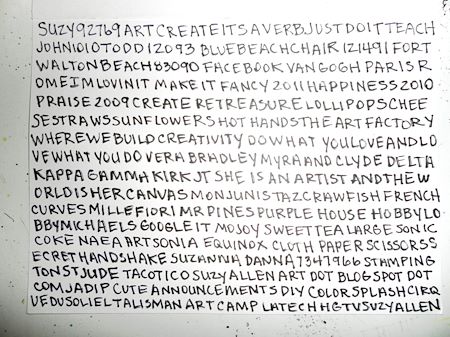 SUZY92769ARTCREATEITSAVERBJUSTDOITTEACH
JOHN1010TODD12093 BLUEBEACHCHAIR121491 FORT
WALTONBEACH83090 FACEBOOK VANGOGH PARIS R
OMEIMLOVINIT MAKE IT FANCY 2011 HAPPINESS 2010
PRAISE 2009 CREATE RETREASURE LOLLIPOPSCHEE
SESTRAWSSUNFLOWERS HOT HANDSTHE ART FACTORY
WHEREWEBUILD CREATIVITY DOWHAT YOULOVEANDLO
VEWHAT YOU DO VERA BRADLEY MYRAAND CLYDE DELTA
KAPPA GAMMA KIRK JT SHE IS AN ARTIST ANDTHEW
ORLDISHERCANVAS MONJUNISTAZCRAWFISH FRENCH
CURVES MILLEFIORI MR PINES PURPLE HOUSE HOBBYLO
BBYMICHAELSGOOGLEIT MOJOY SWEETTEA LARGE SONIC
COKE NAEA ARTSONIA EQUINOX CLOTH PAPER SCISSORSS
ECRETHANDSHAKE SUZANNA DANNA7347966 STAMPING
TONSTJUDE TACOTICO SUZY ALLEN ART DOT BLOGSPOT DOT
COM JADIP CUTE ANNOUNCEMENTS DIY COLORSPLASHCIRQ
UEDUSOLIELTALISMAN ART CAMP LATECHHGTVSUZYALLEN